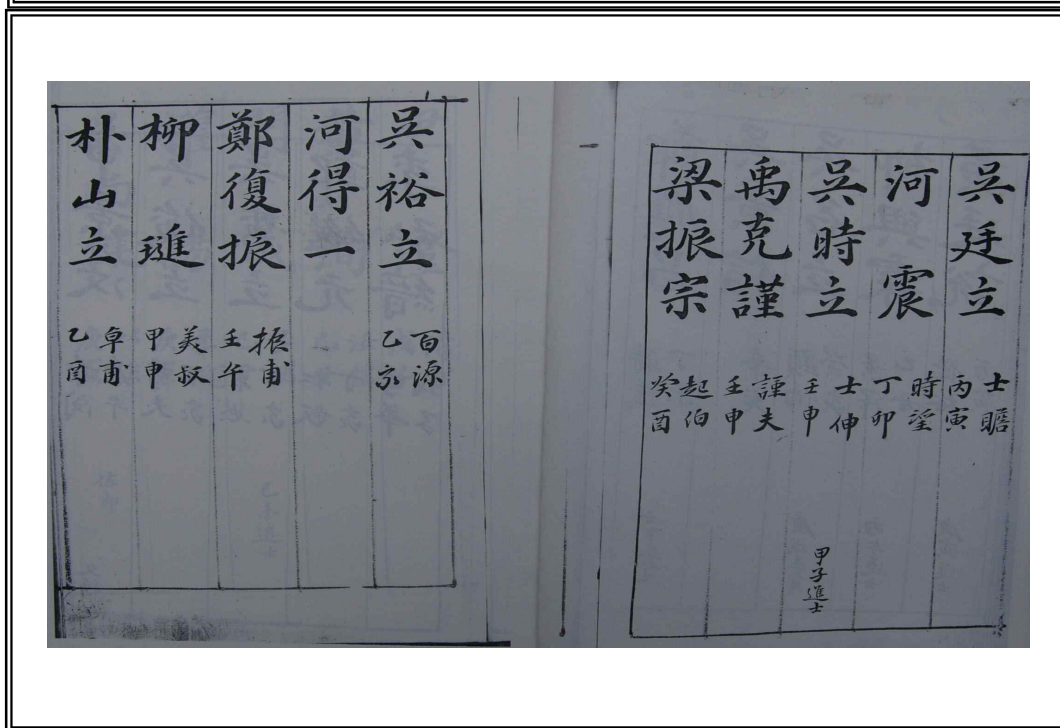 吳廷立 士瞻 丙寅
河震 時望 丁卯
吳時立 士伸 壬申 甲子進士
禹克謹 謹夫 壬申
梁振宗 起伯 癸酉
吳裕立 百源 乙亥
河得一
鄭復振 振甫 壬午
柳璡 美叔 甲申
朴山立 卓甫 乙酉